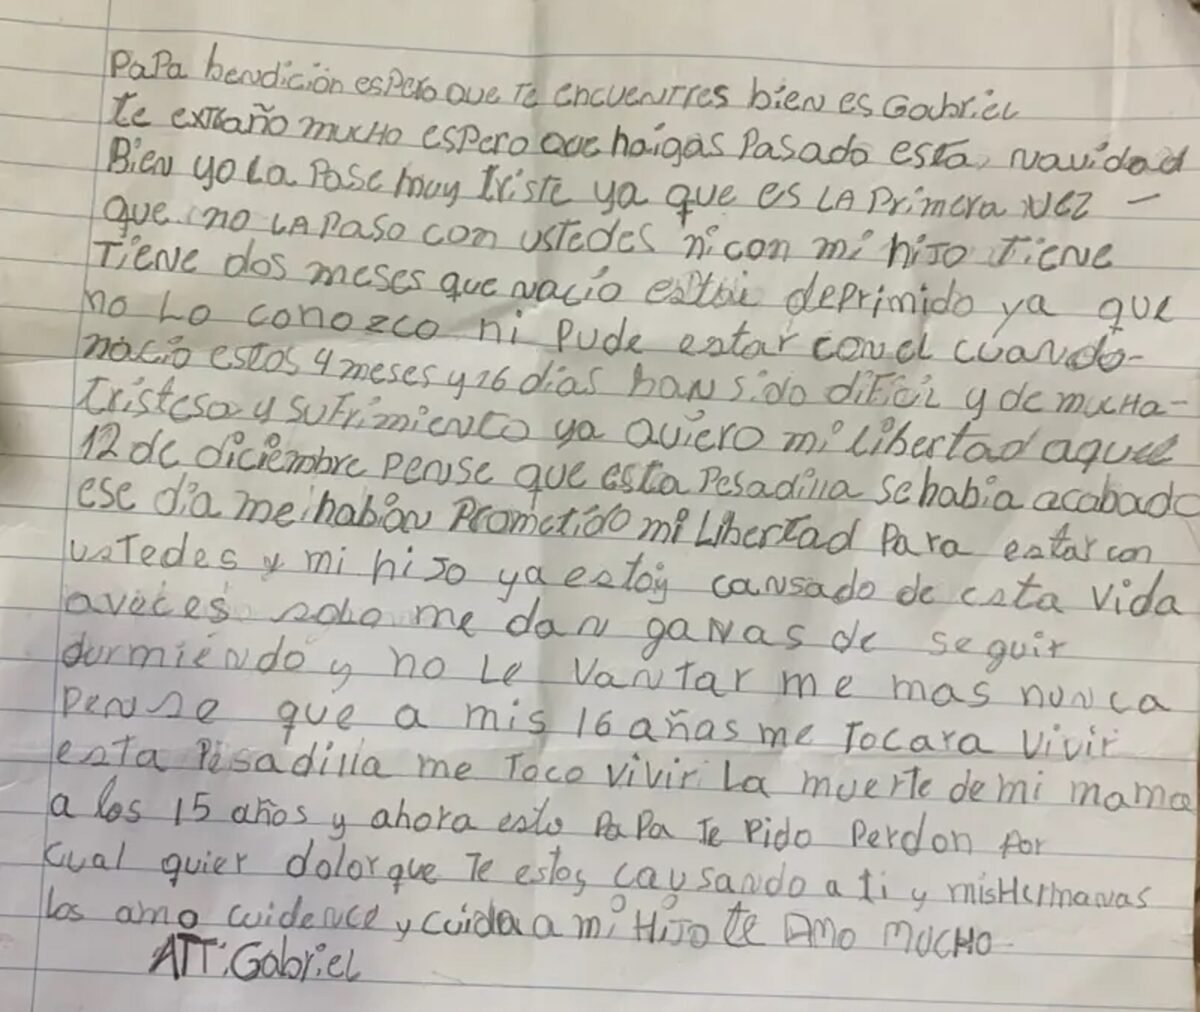 PaPa bendición espero que te encuentres bien es Gabriel
te extraño mucho espero que haigas pasado esta navidad
Bien yo la pase muy triste ya que es la primera vez -
que no la paso con ustedes ni con mi hijo tiene
tiene dos meses que nacio estoi deprimido ya que
no lo conozco ni pude estar con el cuando-
nacio estos 4 meses y 26 dias han sido dificil y de mucha-
tristesa y sufrimiento ya quiero mi libertad aquel
12 de diciembre pense que esta pesadilla se habia acabado
ese dia me habian prometido mi libertad para estar con
ustedes y mi hijo ya estoy cansado de esta vida
aveces solo me dan ganas de seguir
durmiendo y no le vantar me mas nunca
pense que a mis 16 años me tocara vivir
esta pesadilla me toco vivir la muerte de mi mama
a los 15 años y ahora esto papa te pido perdon por
cual quier dolor que te estoy causando a ti y mis hermanas
los amo cuidence y cuida a mi hijo te amo mucho
ATT: Gabriel